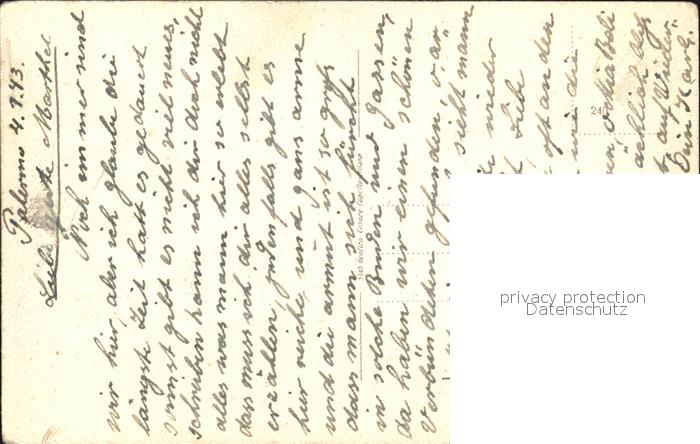 Palermo 4.1.43.
Liebe gute Marthel
Noch immer sind
wir hier, aber ich glaube die
längste Zeit hatt es gedauert
sonst gibt es nicht viel neues,
schreiben kann ich dir doch nicht
alles was mann hier so erlebt
dass muss ich dir alles selbst
erzählen, jedenfalls gibt es
hier reiche und ganz arme
und die armut ist so groß
dass mann sich fürcht
in solche Buden und Gassen,
da haben wir einen schönen
Verbündeten gefunden, o. ar
sieht mann
wieder
Liebe
oft an den
die
auf Wieder
Dein Karl
24
privacy protection
Datenschutz